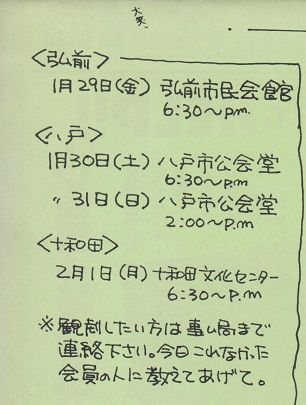 大笑。
<弘前>
1月29日(金) 弘前市民会館
6:30~p.m.
<八戸>
1月30日(土) 八戸市公会堂
6:30~p.m
〃 31日(日) 八戸市公会堂
2:00~P.m.
<十和田>
2月1日(月) 十和田文化センター
6:30~P.m
※観劇したい方は事ム局まで
連絡下さい。今日これなかった
会員の人に教えてあげて。